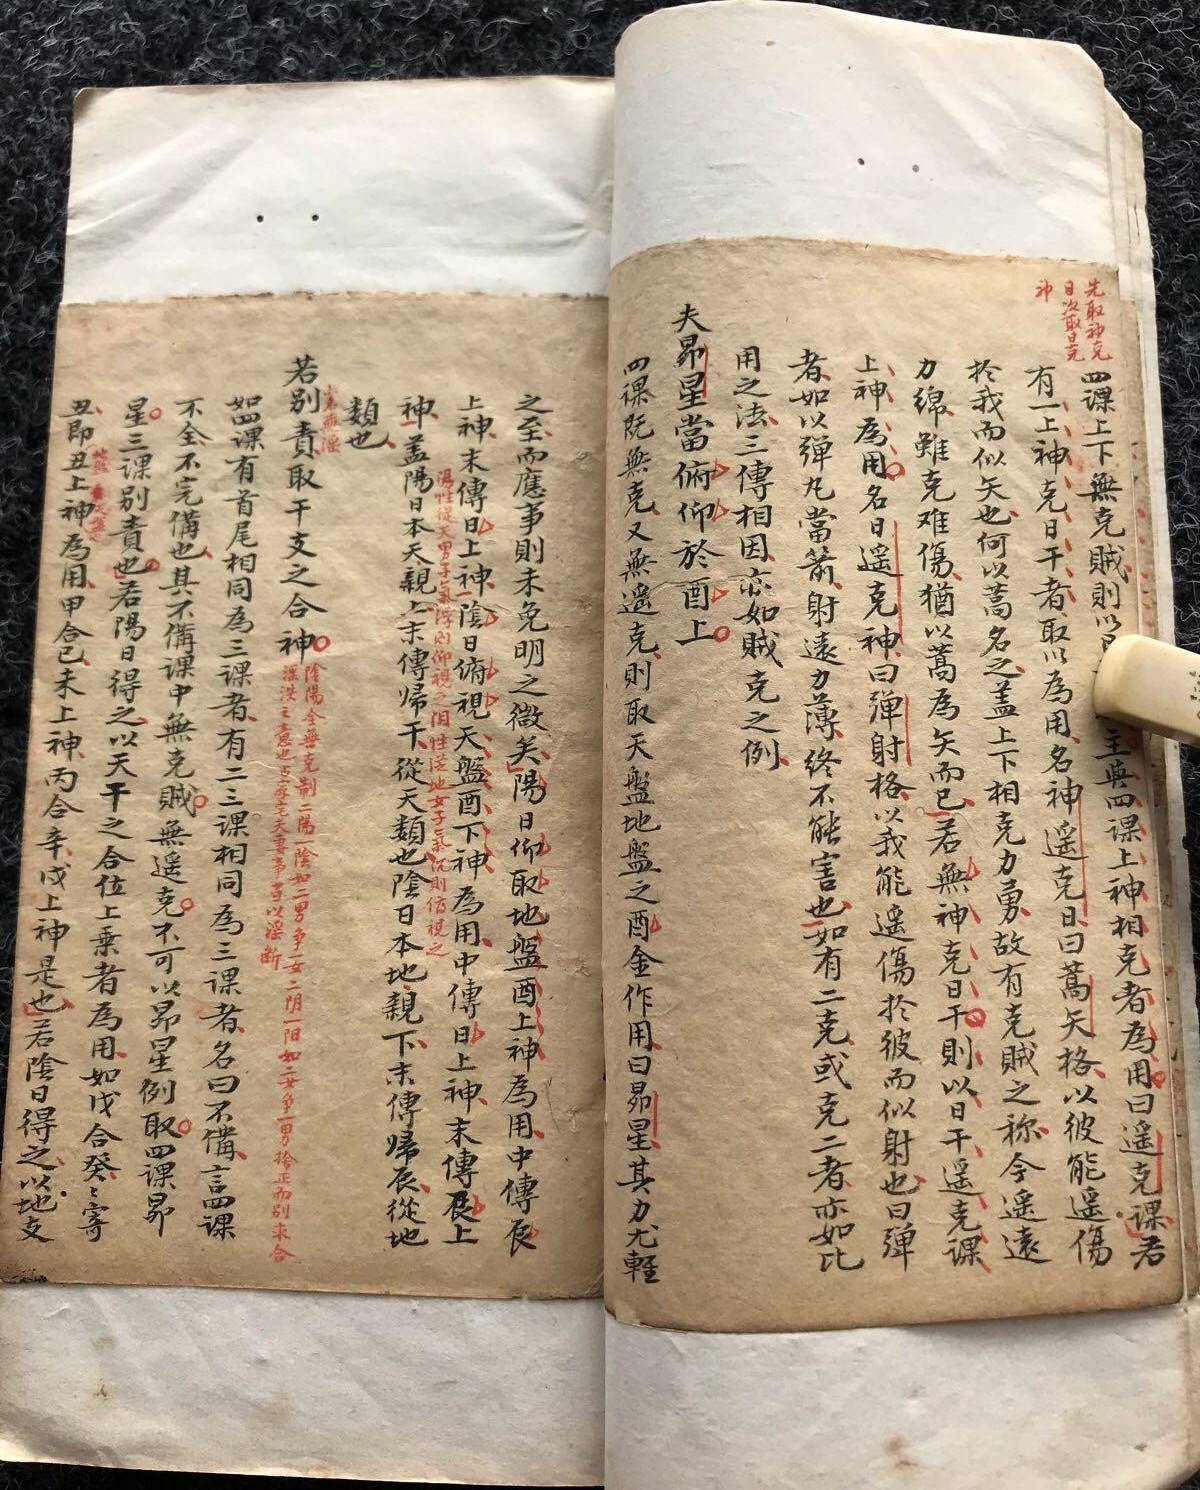 先取神克
日次取日克
神
四課上下無克賊則以日主與四課上神相克者為用曰遥克課若
有一上神克日干者取以為用名神遥克日曰蒿矢格以彼能遥傷
於我而似矢也何以蒿名之蓋上下相克力勇故有克賊之称今遥遠
力綿雖克难傷猶以蒿為矢而已若無神克日干則以日干遥克課
上神為用名日遥克神曰弹射格以我能遥傷於彼而似射也曰弹
者如以弹丸當箭射遠力薄終不能害也如有二克或克二者亦如比
用之法三傳相因亦如賊克之例
夫昴星當俯仰於酉上
四課既無克又無遥克則取天盤地盤之酉金作用曰昴星其力尤輕
之至而應事則未免明之微矣陽日仰取地盤酉上神為用中傳辰
上神末傳日上神陰日俯視天盤酉下神為用中傳日上神末傳辰上
神蓋陽日本天親上末傳歸干從天類也陰日本地親下末傳歸辰從地
陽性從天男子氣浮則仰視之阴性從地女子氣沉則俯視之
類也
若別責取干支之合神
陰陽全無克制二陽一陰如二男争一女二阴一阳如二女争一男捨正而别求合
淫泆之意也占家宅夫妻事等以淫断
如四課有首尾相同為三課者有二三課相同為三課者名曰不備言四課
不全不完備也其不備課中無克賊無遥克不可以昴星例取四課昴
星三課别責也若陽日得之以天干之合位上乗者為用如戊合癸々寄
丑即丑上神為用甲合己未上神丙合辛戌上神是也若陰日得之以地支